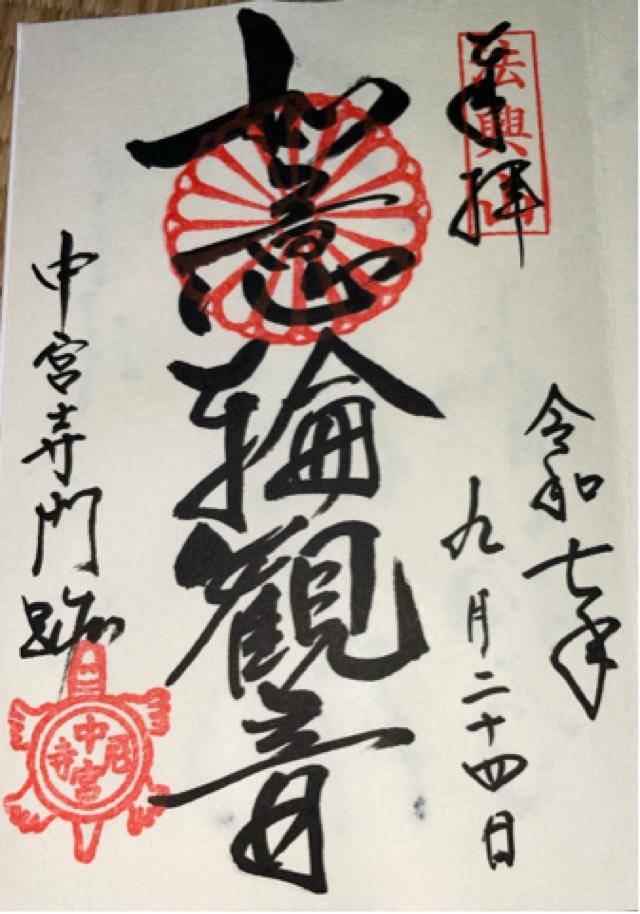 奉拝
法興山
令和七年
九月二十四日
如意輪觀音
中宮寺門跡
中宮尼寺